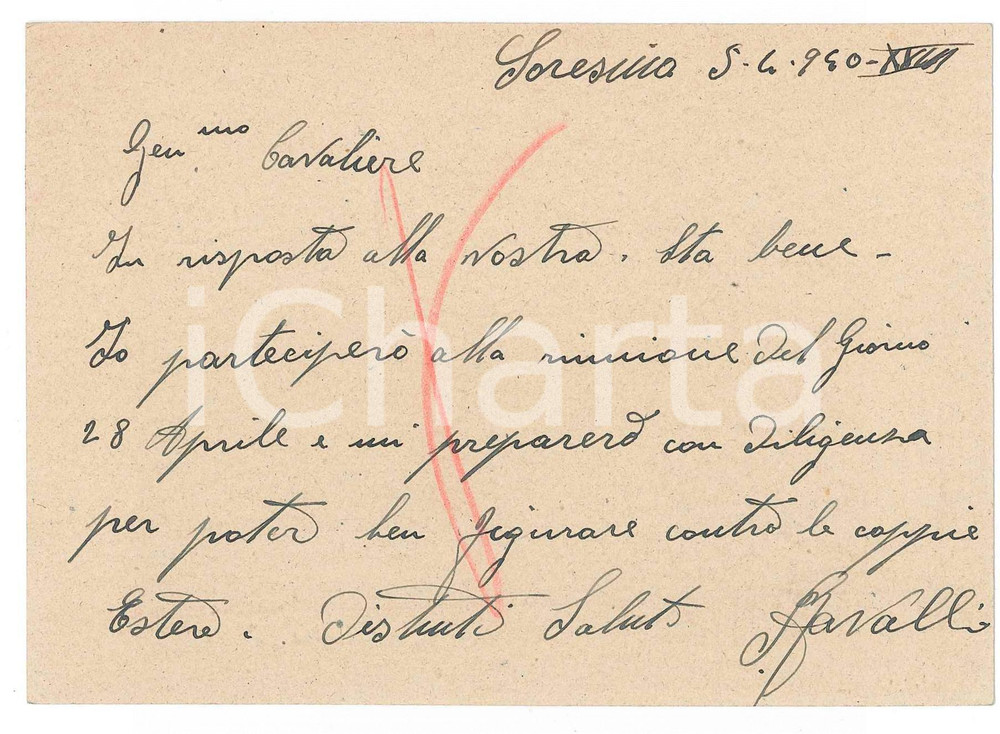 Soresina 5-4-940-XVIII
Gen mo Cavaliere
In risposta alla vostra. Sta bene -
Io parteciperò alla riunione del Giorno
28 Aprile e mi preparerò con diligenza
per poter ben figurare contro le coppie
Estere. Distinti Saluti
iCharta